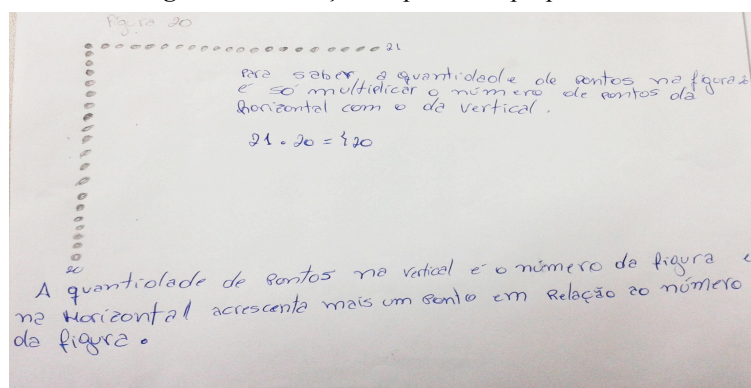 Figura 20
21
Para saber, a quantidade de pontos na figura é
é só multiplicar o número de pontos da
horizontal com o da vertical.
21 . 20 = 420
20
A quantidade de pontos na vertical é o número da figura e
na Horizontal acrescenta mais um ponto em Relação ao número
da figura.